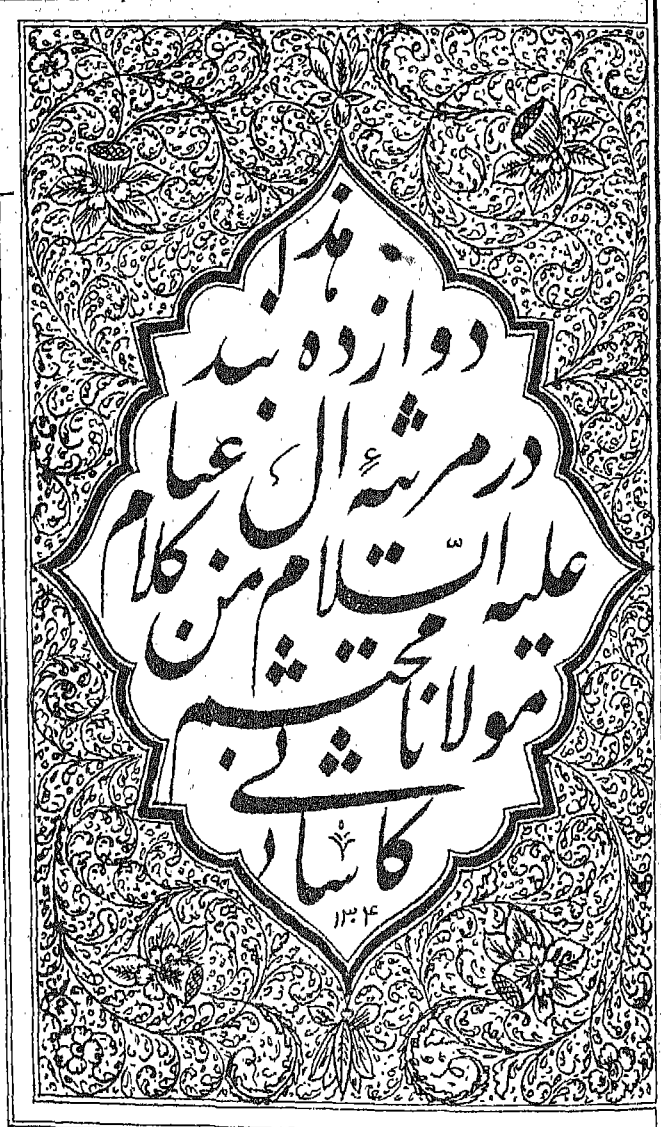 هذا
دوازده بند
در مرثیهٔ ال عبا
علیه السّلام من کلام
مولانا محتشم
کاشانی
۱۳۰۴